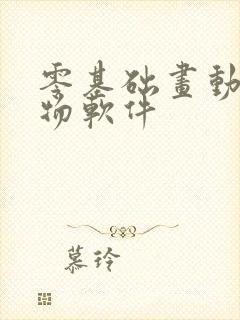 零基础畫動
物軟件
慕玲